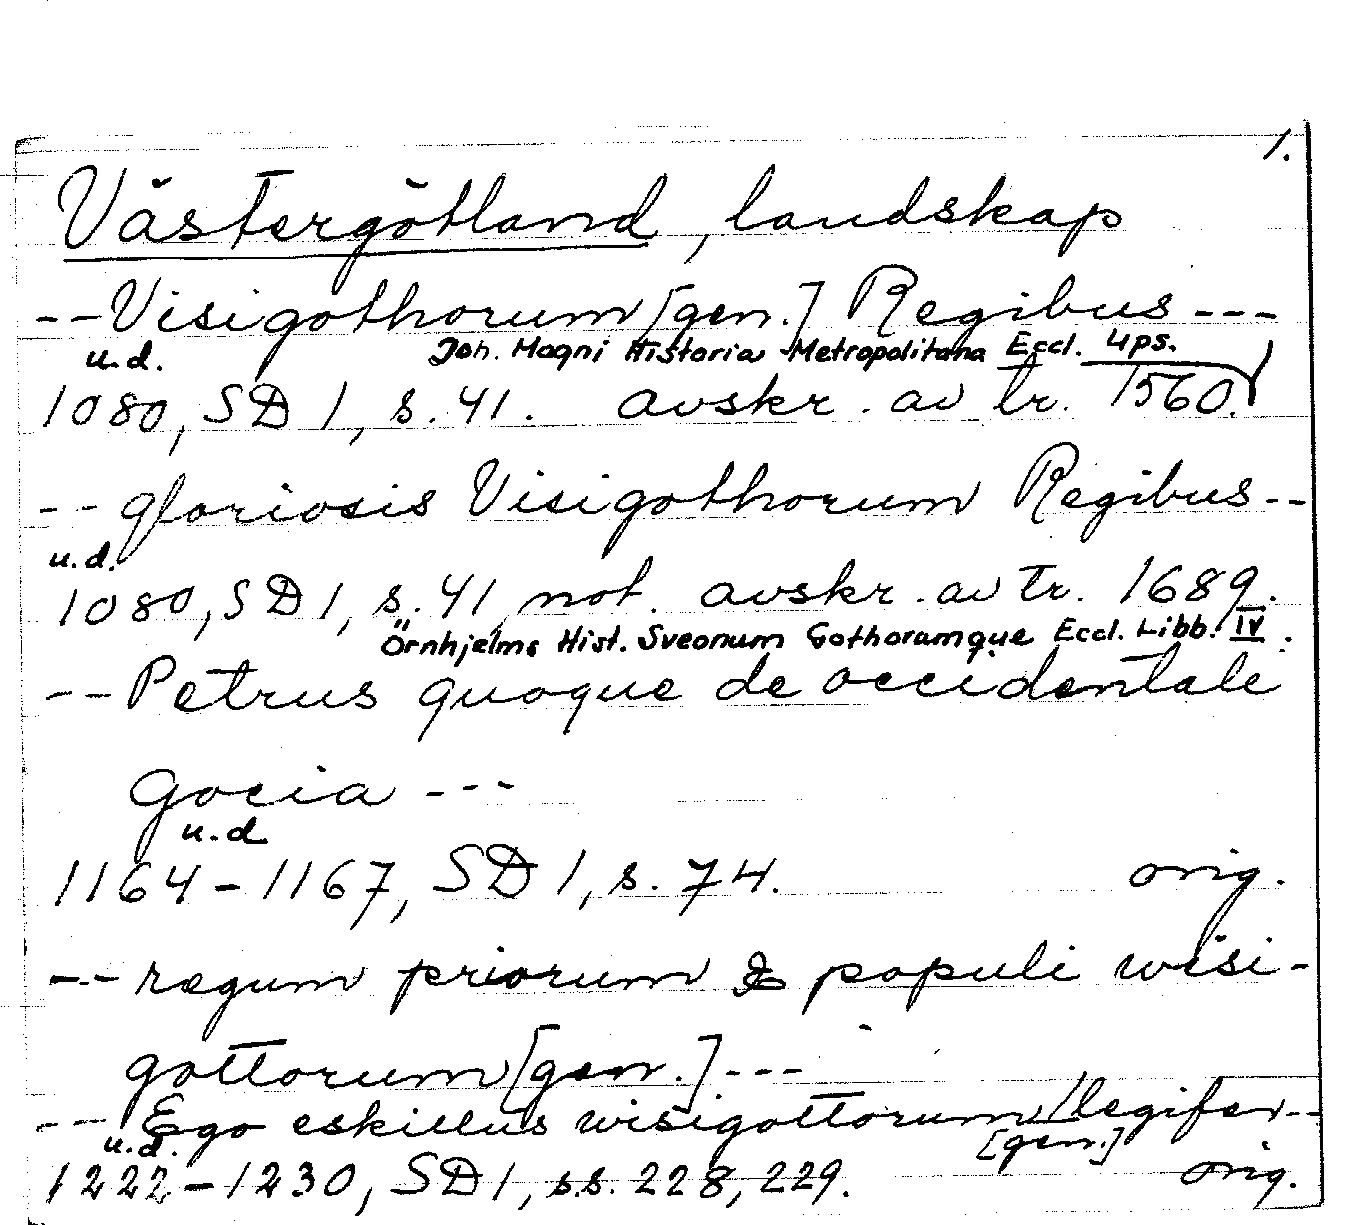 1.
Västergötland, landskap
--Visigothorum [gen.] Regibus---
u.d. Joh. Magni Historia Metropolitana Eccl. Ups.
1080, SD 1, s. 41. avskr. av tr. 1560.
-- gloriosis Visigothorum Regibus--
u.d.
1080, SD 1, s. 41, not. avskr. av tr. 1689.
Örnhjelms Hist. Sveonum Gothoramque Eccl. Libb. IV.
--Petrus quoque de occidentale
gocia ---
u.d
1164-1167, SD 1, s. 74. orig.
--regum priorum & populi wisi-
gottorum [gen.]---
--- Ego eskillus wisigottorum legifer--
u.d. [gen.]
1222-1230, SD 1, s.s. 228, 229. orig.